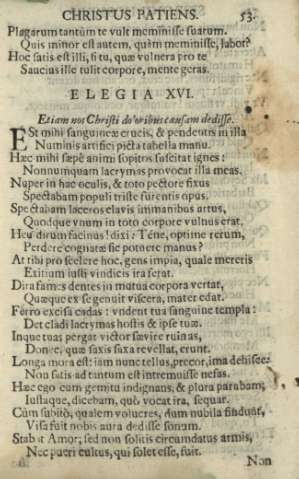 CHRISTUS PATIENS. 53.
Plagarum tantùm te vult meminisse suarum.
Quis minor est autem, quàm meminisse, labor?
Hoc satis est illi, si tu, quæ vulnera pro te
Saucius ille tulit corpore, mente geras.
ELEGIA XVI.
Etiam nos Christi doloribus causam dedisse.
ESt mihi sanguineæ crucis, & pendentis in illa
Numinis artifici picta tabella manu.
Hæc mihi sæpè animi sopitos suscitat ignes:
Nonnumquam lacrymas provocat illa meas.
Nuper in hac oculis, & toto pectore fixus
Spectabam populi triste furentis opus.
Spectabam laceros clavis immanibus artus,
Quodque unum in toto corpore vulnus erat,
Heu dirum facinus! dixi: Téne, optime rerum,
Perdere cognatæ sic potuere manus?
At tibi pro scelere hoc, gens impia, quale mereris
Exitium iusti vindicis ira ferat.
Dira fames dentes in mutua corpora vertat,
Quæque ex se genuit viscera, mater edat.
Ferro excisa cadas: undent tua sanguine templa:
Det cladi lacrymas hostis & ipse tuæ.
Inque tuas pergat victor sævire ruinas,
Donec, quæ saxis saxa revellat, erunt.
Longa mora est: iam nunc tellus, precor, ima dehisce:
Non satis ad tantum est intremuisse nefas.
Hæc ego cum gemitu indignans, & plura parabam;
Iustaque, dicebam, quò vocat ira, sequar.
Cùm subitò, qualem volucres, dum nubila findunt,
Visa fuit nobis aura dedisse sonum.
Stabat Amor; sed non solitis circumdatus armis,
Nec pueri cultus, qui solet esse, fuit.
Non